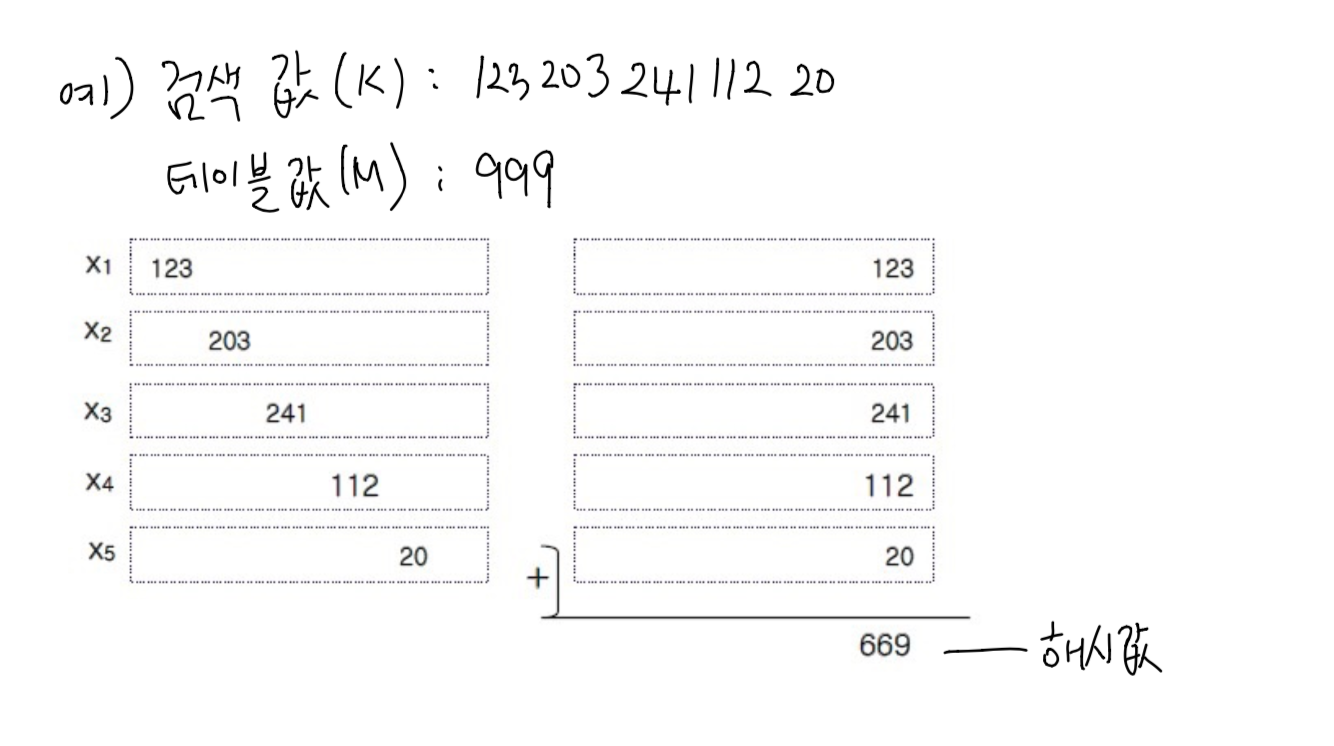 예) 검색 값(K) : 123 203 241 112 20
테이블 값(M) : 999
X1 123 123
X2 203 203
X3 241 241
X4 112 112
X5 20 + 20
669 — 해시값